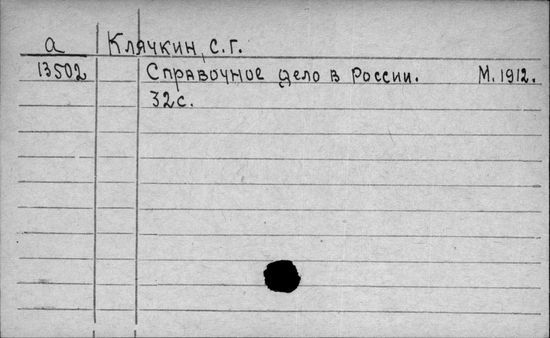 а Клячкин, С.Г.
13502 Справочное дело в России. М. 1912.
32с.